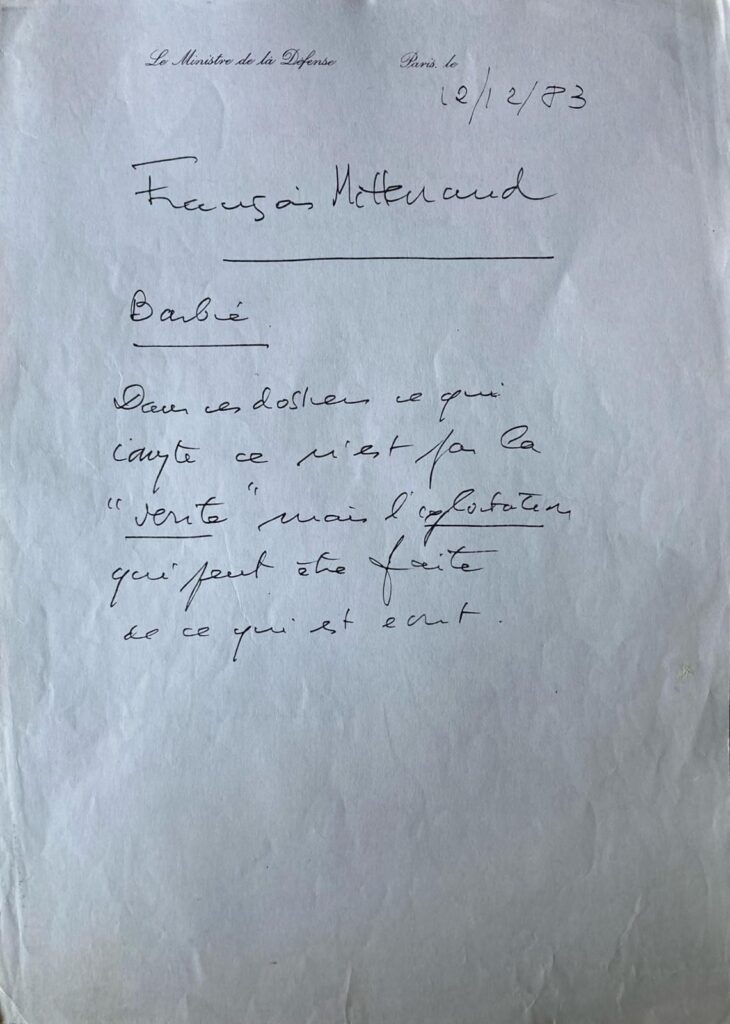 Le Ministre de la Défense Paris, le
12/12/83
François Mitterrand
Barbié
Dans ces dossiers ce qui
compte ce n'est pas la
"vérité" mais l'exploitation
qui peut être faite
de ce qui est écrit.